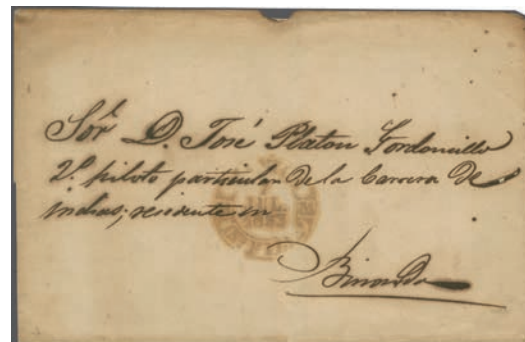 Sor. D. José Platon Tordoncillo
2º. piloto particular de la Carrera de
Indias, residente en
Binondo